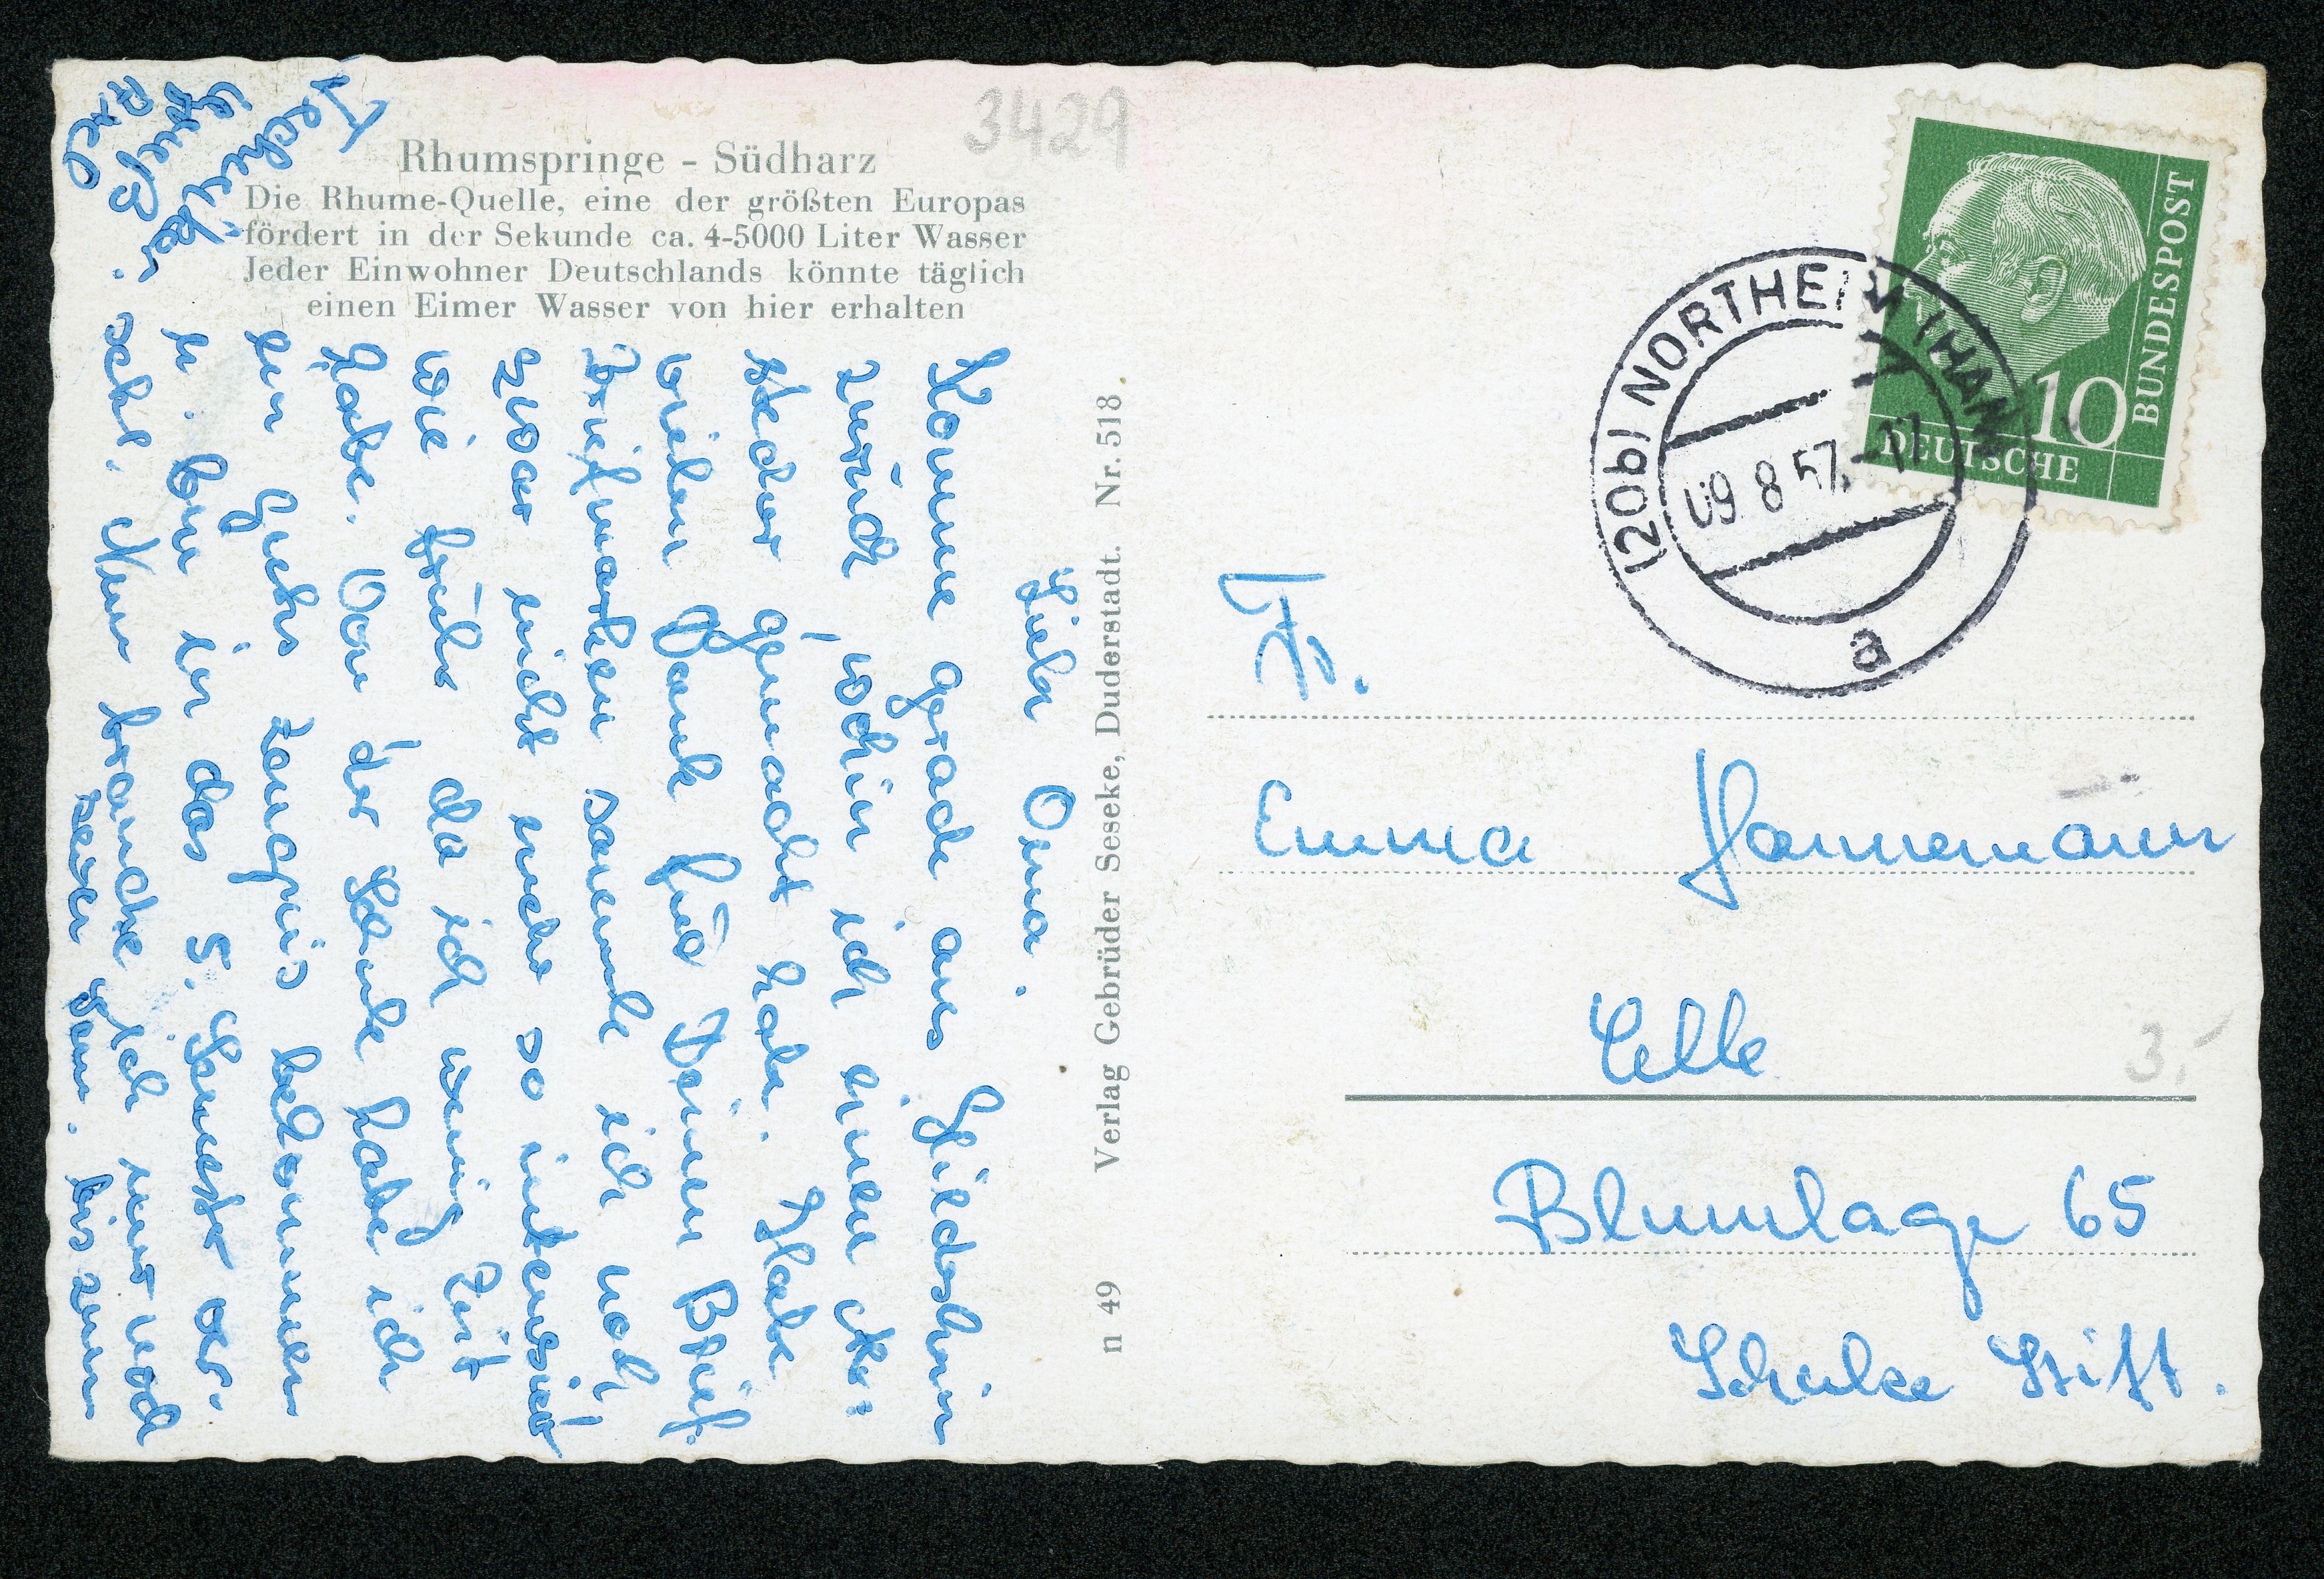 3429
Rhumspringe - Südharz
Die Rhume-Quelle, eine der größten Europas
fördert in der Sekunde ca. 4-5000 Liter Wasser
Jeder Einwohner Deutschlands könnte täglich
einen Eimer Wasser von hier erhalten
Liebe Oma.
Komme gerade aus Hildesheim
zurück, wohin ich einen
stecher gemacht habe. Habe
vielen Dank für Deinen Brief.
Briefmarken sammle ich noch
zwar nicht mehr so intensiv
wie früher, da ich wenig Zeit
habe. Von der Schule habe ich
ein gutes Zeugnis bekommen
u. bin in das 5. Semester ver-
setzt. Nun brauche ich nur noch
bis zum
Verlag Gebrüder Seseke, Duderstadt. Nr. 518
n 49
DEUTSCHE BUNDESPOST
10
(20b) NORTHEIM (HAN)
09.8.57.-17
a
Fr.
Emma Hannemann
Celle
3.-
Blumlage 65
Schulze Stift.